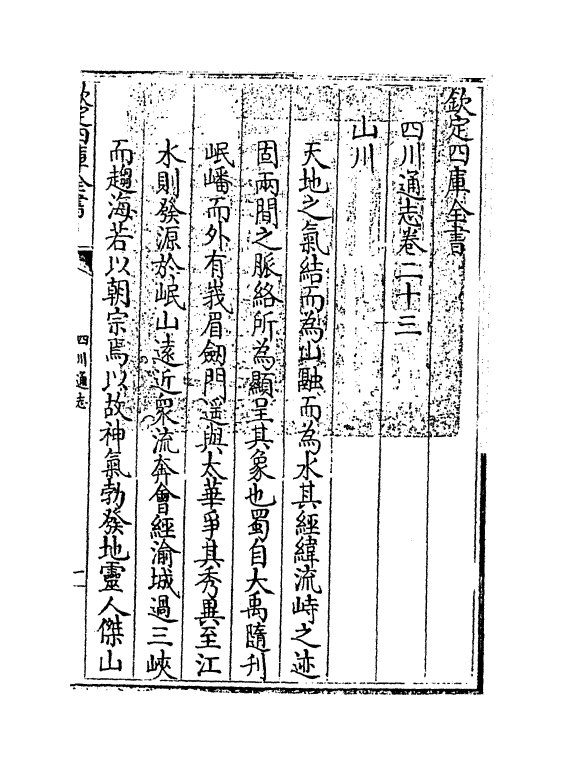 欽定四庫全書
四川通志卷二十三
山川
天地之氣結而為山融而為水其經緯流峙之迹
固兩間之脈絡所為顯呈其象也蜀自大禹隨刋
岷嶓而外有峩眉劒門遥與太華爭其秀異至江
水則發源於岷山遠近衆流奔會經渝城過三峽
而趨海若以朝宗焉以故神氣勃發地靈人傑山
欽定四庫全書
四川通志
一